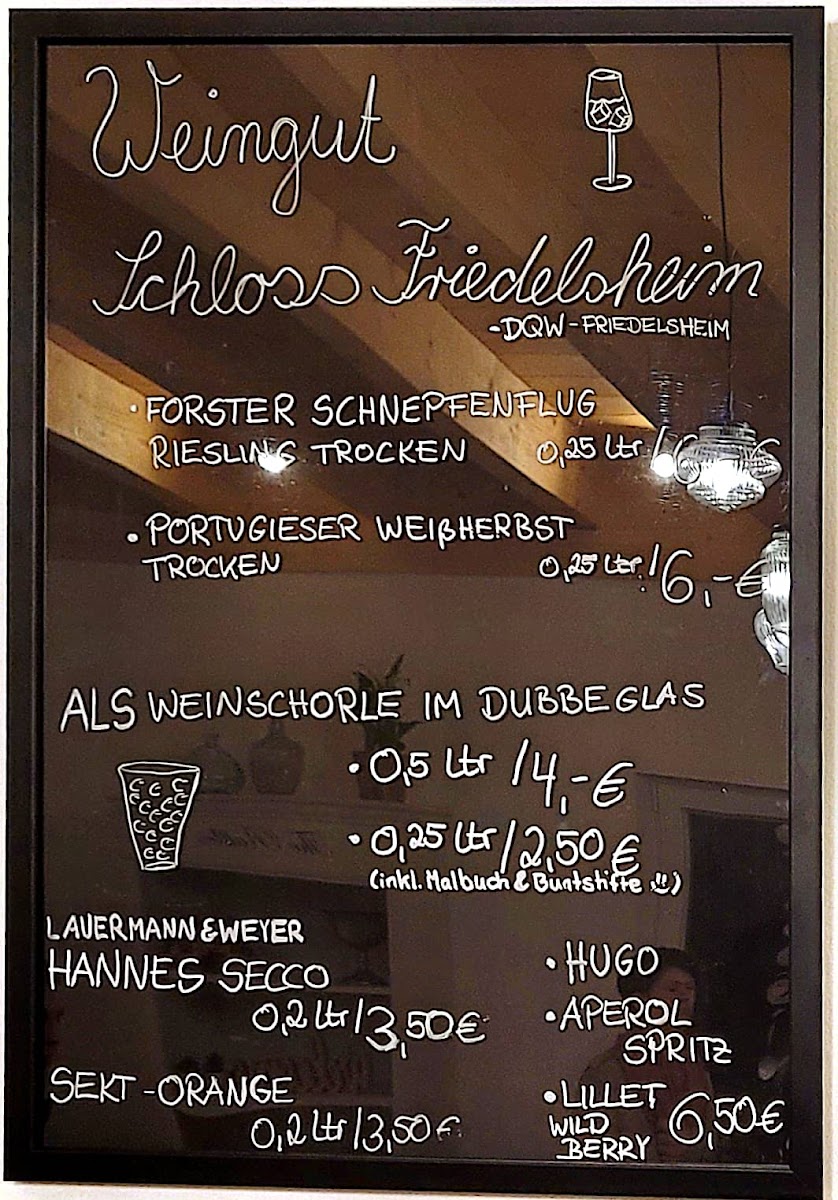 Weingut
Schloss Friedelsheim
-DQW-FRIEDELSHEIM
• FORSTER SCHNEPFENFLUG
RIESLING TROCKEN 0,25 Ltr /
• PORTUGIESER WEIßHERBST
TROCKEN 0,25 Ltr./6,-€
ALS WEINSCHORLE IM DUBBEGLAS
• 0,5 Ltr /4,-€
• 0,25 Ltr/2,50 €
(inkl. Malbuch & Buntstifte)
LAUERMANN & WEYER
HANNES SECCO
0,2 Ltr/3,50€
SEKT-ORANGE
0,2 Ltr/3,50€
• HUGO
• APEROL
SPRITZ
• LILLET
WILD
BERRY 6,50€